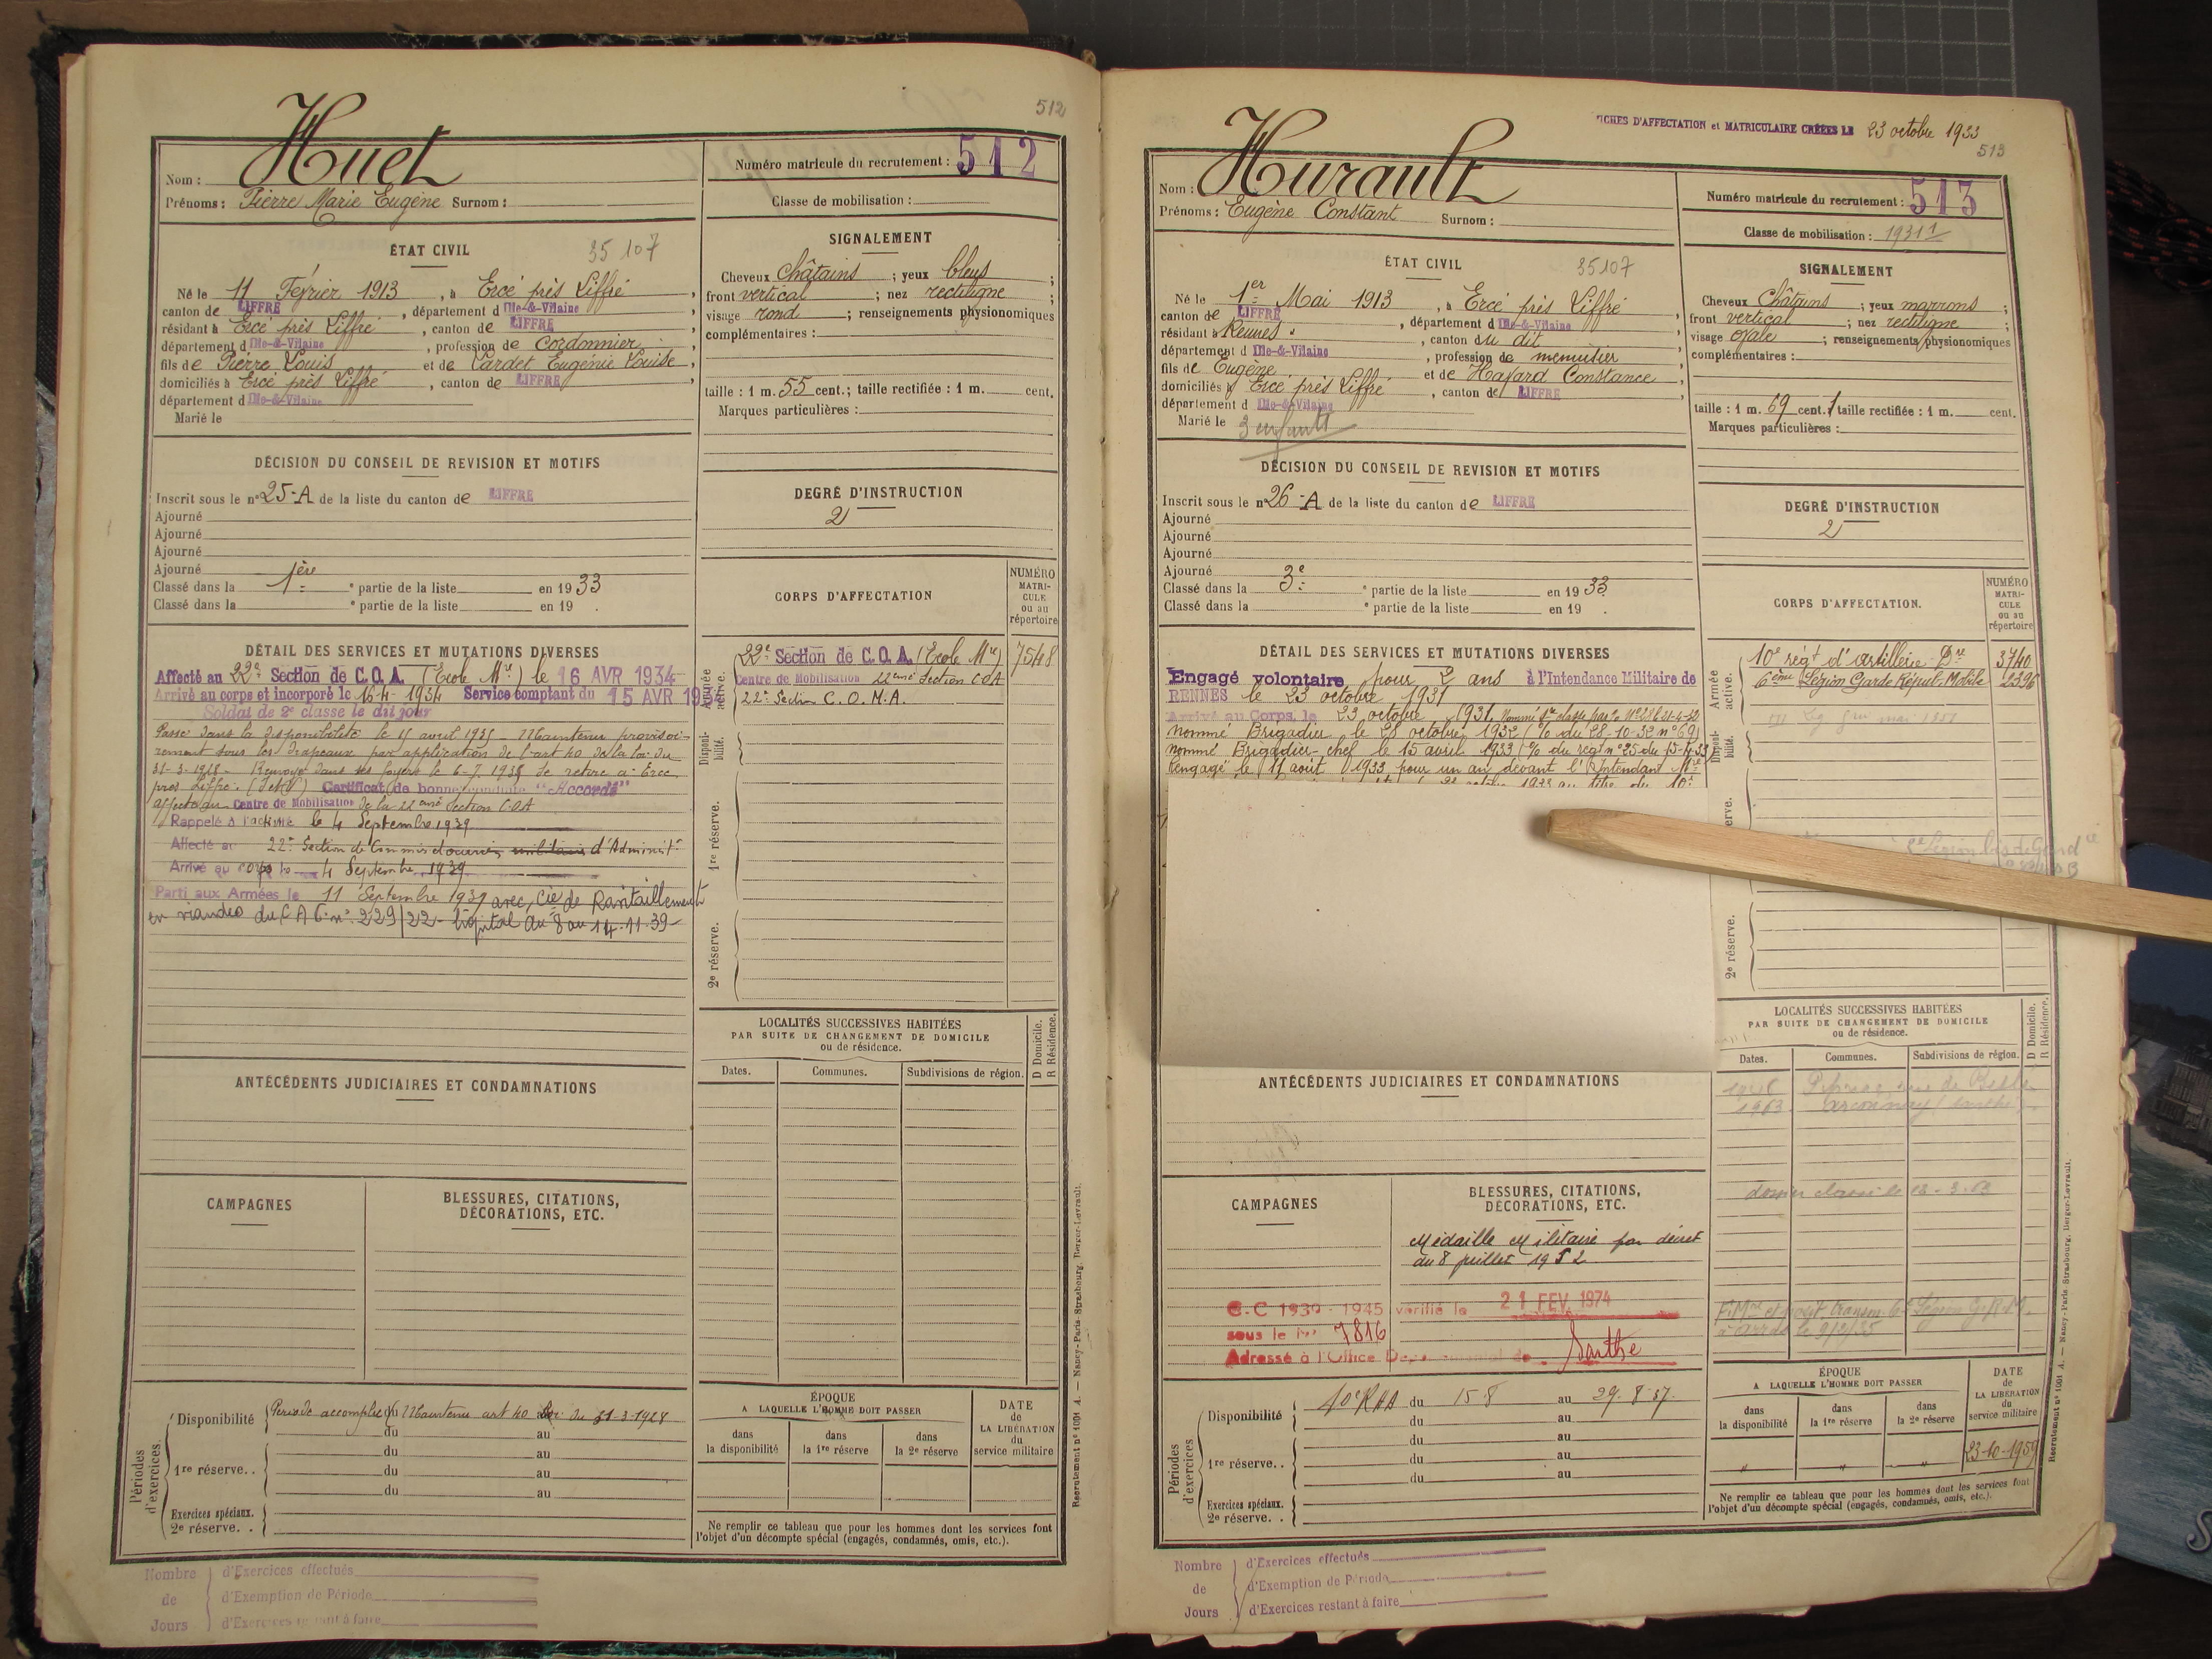 512
Huet
Nom :
Prénoms : Pierre Marie Eugène Surnom :
Numéro matricule du recrutement : 512
Classe de mobilisation :
ÉTAT CIVIL
35 107
Né le 11 Février 1913, à Ercé près Liffré,
canton de LIFFRÉ, département d Ille-&-Vilaine
résidant à Ercé près Liffré, canton de LIFFRÉ
département d Ille-&-Vilaine, profession de cordonnier,
fils de Pierre Louis et de Cardet Eugénie Louise,
domiciliés à Ercé près Liffré, canton de LIFFRÉ,
département d Ille-&-Vilaine
Marié le
SIGNALEMENT
Cheveux châtains ; yeux bleus ;
front vertical ; nez rectiligne ;
visage rond ; renseignements physionomiques
complémentaires :
taille : 1 m. 55 cent.; taille rectifiée : 1 m. cent.
Marques particulières :
DÉCISION DU CONSEIL DE REVISION ET MOTIFS
Inscrit sous le n° 25-A de la liste du canton de LIFFRÉ
Ajourné
Ajourné
Ajourné
Ajourné
Classé dans la 1ère partie de la liste en 1933
Classé dans la ° partie de la liste en 19 .
DEGRÉ D'INSTRUCTION
2
CORPS D'AFFECTATION
NUMÉRO
MATRI-
CULE
ou au
répertoire
DÉTAIL DES SERVICES ET MUTATIONS DIVERSES
Affecté au 22e Section de C.O.A. (Ecole Mre) le 16 AVR 1934
Arrivé au corps et incorporé le 16-4-1934 Service comptant du 15 AVR 193
Soldat de 2e classe le dit jour
Passé dans la disponibilité le 15 avril 1935 - Maintenu provisoi-
rement sous les drapeaux par application de l'art 40 de la loi du
31-3-1928 - Renvoyé dans ses foyers le 6-7-1935 Se retire à Ercé
près Liffré. (I et V) Certificat de bonne conduite "Accordé"
affecté au Centre de Mobilisation de la 22eme Section C.O.A
Rappelé à l'activité le 4 Septembre 1939
Affecté au 22e Section de Commis militaires d'Administ°
Arrivé au corps le 4 Septembre 1939
Parti aux Armées le 11 Septembre 1939 avec Cie de Ravitaillement
en viandes du C A C n° 229/22 - hôpital du 8 au 14.11.39-
Armée active.
22e Section de C.O.A. (Ecole Mre) 7548
Centre de Mobilisation 22eme Section C.O.A
22e Section C.O.M.A.
Disponibilité.
1re réserve.
2e réserve.
LOCALITÉS SUCCESSIVES HABITÉES
PAR SUITE DE CHANGEMENT DE DOMICILE
ou de résidence.
D Domicile.
R Résidence.
Dates. Communes. Subdivisions de région.
ANTÉCÉDENTS JUDICIAIRES ET CONDAMNATIONS
CAMPAGNES
BLESSURES, CITATIONS,
DÉCORATIONS, ETC.
Périodes d'exercices.
Disponibilité Période accomplie Maintenu art 40 Loi du 31-3-1928
du au
du au
1re réserve. . du au
du au
Exercices spéciaux.
2e réserve. .
ÉPOQUE
A LAQUELLE L'HOMME DOIT PASSER
dans la disponibilité
dans la 1re réserve
dans la 2e réserve
DATE
de
LA LIBÉRATION
du
service militaire
Ne remplir ce tableau que pour les hommes dont les services font
l'objet d'un décompte spécial (engagés, condamnés, omis, etc.).
Recrutement n° 1001 A. — Nancy-Paris-Strasbourg, Berger-Levrault.
Nombre de Jours
d'Exercices effectués
d'Exemption de Période
d'Exercices restant à faire
FICHES D'AFFECTATION et MATRICULAIRE CRÉÉES LE 23 octobre 1933
513
Hurault
Nom :
Prénoms : Eugène Constant Surnom :
Numéro matricule du recrutement : 513
Classe de mobilisation : 1931
ÉTAT CIVIL
35107
Né le 1er Mai 1913, à Ercé près Liffré,
canton de LIFFRÉ, département d Ille-&-Vilaine
résidant à Rennes, canton du dit
département d Ille-&-Vilaine, profession de menuisier,
fils de Eugène et de Hasard Constance,
domiciliés à Ercé près Liffré, canton de LIFFRÉ
département d Ille-&-Vilaine
Marié le 3 enfants
SIGNALEMENT
Cheveux Châtains ; yeux marrons ;
front vertical ; nez rectiligne ;
visage ovale ; renseignements physionomiques
complémentaires :
taille : 1 m. 69 cent. ; taille rectifiée : 1 m. cent.
Marques particulières :
DÉCISION DU CONSEIL DE REVISION ET MOTIFS
Inscrit sous le n° 26-A de la liste du canton de LIFFRÉ
Ajourné
Ajourné
Ajourné
Ajourné
Classé dans la 3e partie de la liste en 1933
Classé dans la ° partie de la liste en 19 .
DEGRÉ D'INSTRUCTION
2
CORPS D'AFFECTATION.
NUMÉRO
MATRI-
CULE
ou au
répertoire
DÉTAIL DES SERVICES ET MUTATIONS DIVERSES
Engagé volontaire pour 2 ans à l'Intendance Militaire de
RENNES le 23 octobre 1931
Arrivé au Corps le 23 octobre 1931. Nommé 1re classe
nommé Brigadier le 28 octobre 1932 (% du 28-10-32 n° 69)
nommé Brigadier-chef le 15 avril 1933 (% du régt n° 25 du 15-4-33)
Rengagé le 11 août 1933 pour un an devant l'Intendant Mre
Armée active.
10e régt d'artillerie Dre 3740
6ème Légion Garde Républ. Mobile 2396
2e réserve.
LOCALITÉS SUCCESSIVES HABITÉES
PAR SUITE DE CHANGEMENT DE DOMICILE
ou de résidence.
D Domicile.
R Résidence.
Dates. Communes. Subdivisions de région.
1963 Arçonnay (Sarthe)
dossier classé le 12-3-63
ANTÉCÉDENTS JUDICIAIRES ET CONDAMNATIONS
CAMPAGNES
BLESSURES, CITATIONS,
DÉCORATIONS, ETC.
Médaille Militaire par décret
du 8 juillet 1952
C.C 1939-1945 vérifié le 21 FEV. 1974
sous le N° 7816
Adressé à l'Office Départemental de Sarthe
Périodes d'exercices.
Disponibilité 10e RAA du 15-8 au 29-8-37.
du au
du au
1re réserve. . du au
du au
Exercices spéciaux.
2e réserve. .
ÉPOQUE
A LAQUELLE L'HOMME DOIT PASSER
dans la disponibilité
dans la 1re réserve
dans la 2e réserve
DATE
de
LA LIBÉRATION
du
service militaire
23-10-1959
Ne remplir ce tableau que pour les hommes dont les services font
l'objet d'un décompte spécial (engagés, condamnés, omis, etc.).
Recrutement n° 1001 A. — Nancy-Paris-Strasbourg, Berger-Levrault.
Nombre de Jours
d'Exercices effectués
d'Exemption de Période
d'Exercices restant à faire